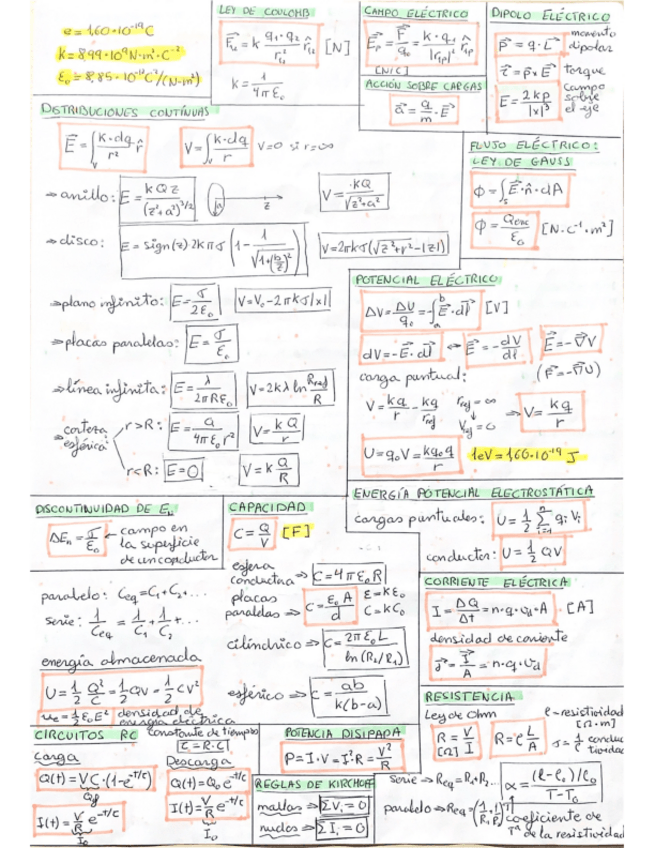 e = 1.60·10⁻¹⁹ C
k = 8.99·10⁹ N·m²·C⁻²
ε₀ = 8.85·10⁻¹² C²/(N·m²)
LEY DE COULOMB
k = 1/4πε₀
[N]
CAMPO ELÉCTRICO
[N/C]
ACCIÓN SOBRE CARGAS
a⃗ = q/m · E⃗
DIPOLO ELÉCTRICO
p⃗ = q·L⃗ momento dipolar
τ⃗ = p⃗ × E⃗ torque
E = 2kp/|x|³ campo sobre el eje
DISTRIBUCIONES CONTÍNUAS
E⃗ = ∫ k·dq/r² r̂
V = ∫ k·dq/r
V=0 si r=∞
⇒ anillo: E = kQz/(z²+a²)^(3/2)
z
V = kQ/√(z²+a²)
⇒ disco: E = sign(z) 2kπσ
⇒ plano infinito: E = σ/2ε₀
V = V₀ - 2πkσ|x|
⇒ placas paralelas: E = σ/ε₀
⇒ línea infinita: E = λ/2πRε₀
V = 2kλ ln Rref/R
⇒ corteza esférica:
r>R: E = Q/4πε₀r²
V = k Q/r
r<R: E=0
V = k Q/R
FLUJO ELÉCTRICO:
LEY DE GAUSS
ϕ = ∫ₛ E⃗·n̂·dA
[N·C⁻¹·m²]
POTENCIAL ELÉCTRICO
ΔV = ΔU/q₀ = -∫ₐᵇ E⃗·dl⃗ [V]
dV = -E⃗·dl⃗ ⇔ E⃗ = -dV/dl
E⃗ = -∇⃗V
(F⃗ = -∇⃗U)
carga puntual:
V = kq/r - kq/rref
rref = ∞
Vref = 0
⇒ V = kq/r
U = q₀V = kq₀q/r
1eV = 1,60·10⁻¹⁹ J
DISCONTINUIDAD DE Eₙ
ΔEₙ = σ/ε₀ ← campo en
la superficie
de un conductor
CAPACIDAD
C = Q/V [F]
esfera
conductora ⇒ C = 4πε₀R
placas
paralelas ⇒ C = ε₀A/d
ε = kε₀
C = kC₀
cilíndrico ⇒ C = 2πε₀L/ln(R₂/R₁)
esférico ⇒ C = ab/k(b-a)
paralelo: Ceq = C₁+C₂+...
serie: 1/Ceq = 1/C₁ + 1/C₂ + ...
energía almacenada
U = 1/2 Q²/C = 1/2 QV = 1/2 CV²
uₑ = 1/2 ε₀E² densidad de
energía eléctrica
ENERGÍA POTENCIAL ELECTROSTÁTICA
cargas puntuales: U = 1/2 Σ qᵢVᵢ
conductor: U = 1/2 QV
CORRIENTE ELÉCTRICA
I = ΔQ/Δt = n·q·v_d·A [A]
densidad de corriente
RESISTENCIA
Ley de Ohm
R = V/I
[Ω]
R = ρ L/A
ρ - resistividad
[Ω·m]
σ = 1/ρ
serie ⇒ Req = R₁+R₂...
paralelo ⇒ Req =
α = (ρ-ρ₀)/ρ₀ / T-T₀
coeficiente de
Tª de la resistividad
CIRCUITOS RC
constante de tiempo
τ = R·C
Carga
Q(t) = VC·(1-e^(-t/τ))
I(t) = V/R e^(-t/τ)
I₀
Descarga
Q(t) = Q₀·e^(-t/τ)
I(t) = V/R e^(-t/τ)
I₀
POTENCIA DISIPADA
P = I·V = I²·R = V²/R
REGLAS DE KIRCHOFF
mallas ⇒ ΣVᵢ = 0
nudos ⇒ ΣIᵢ = 0